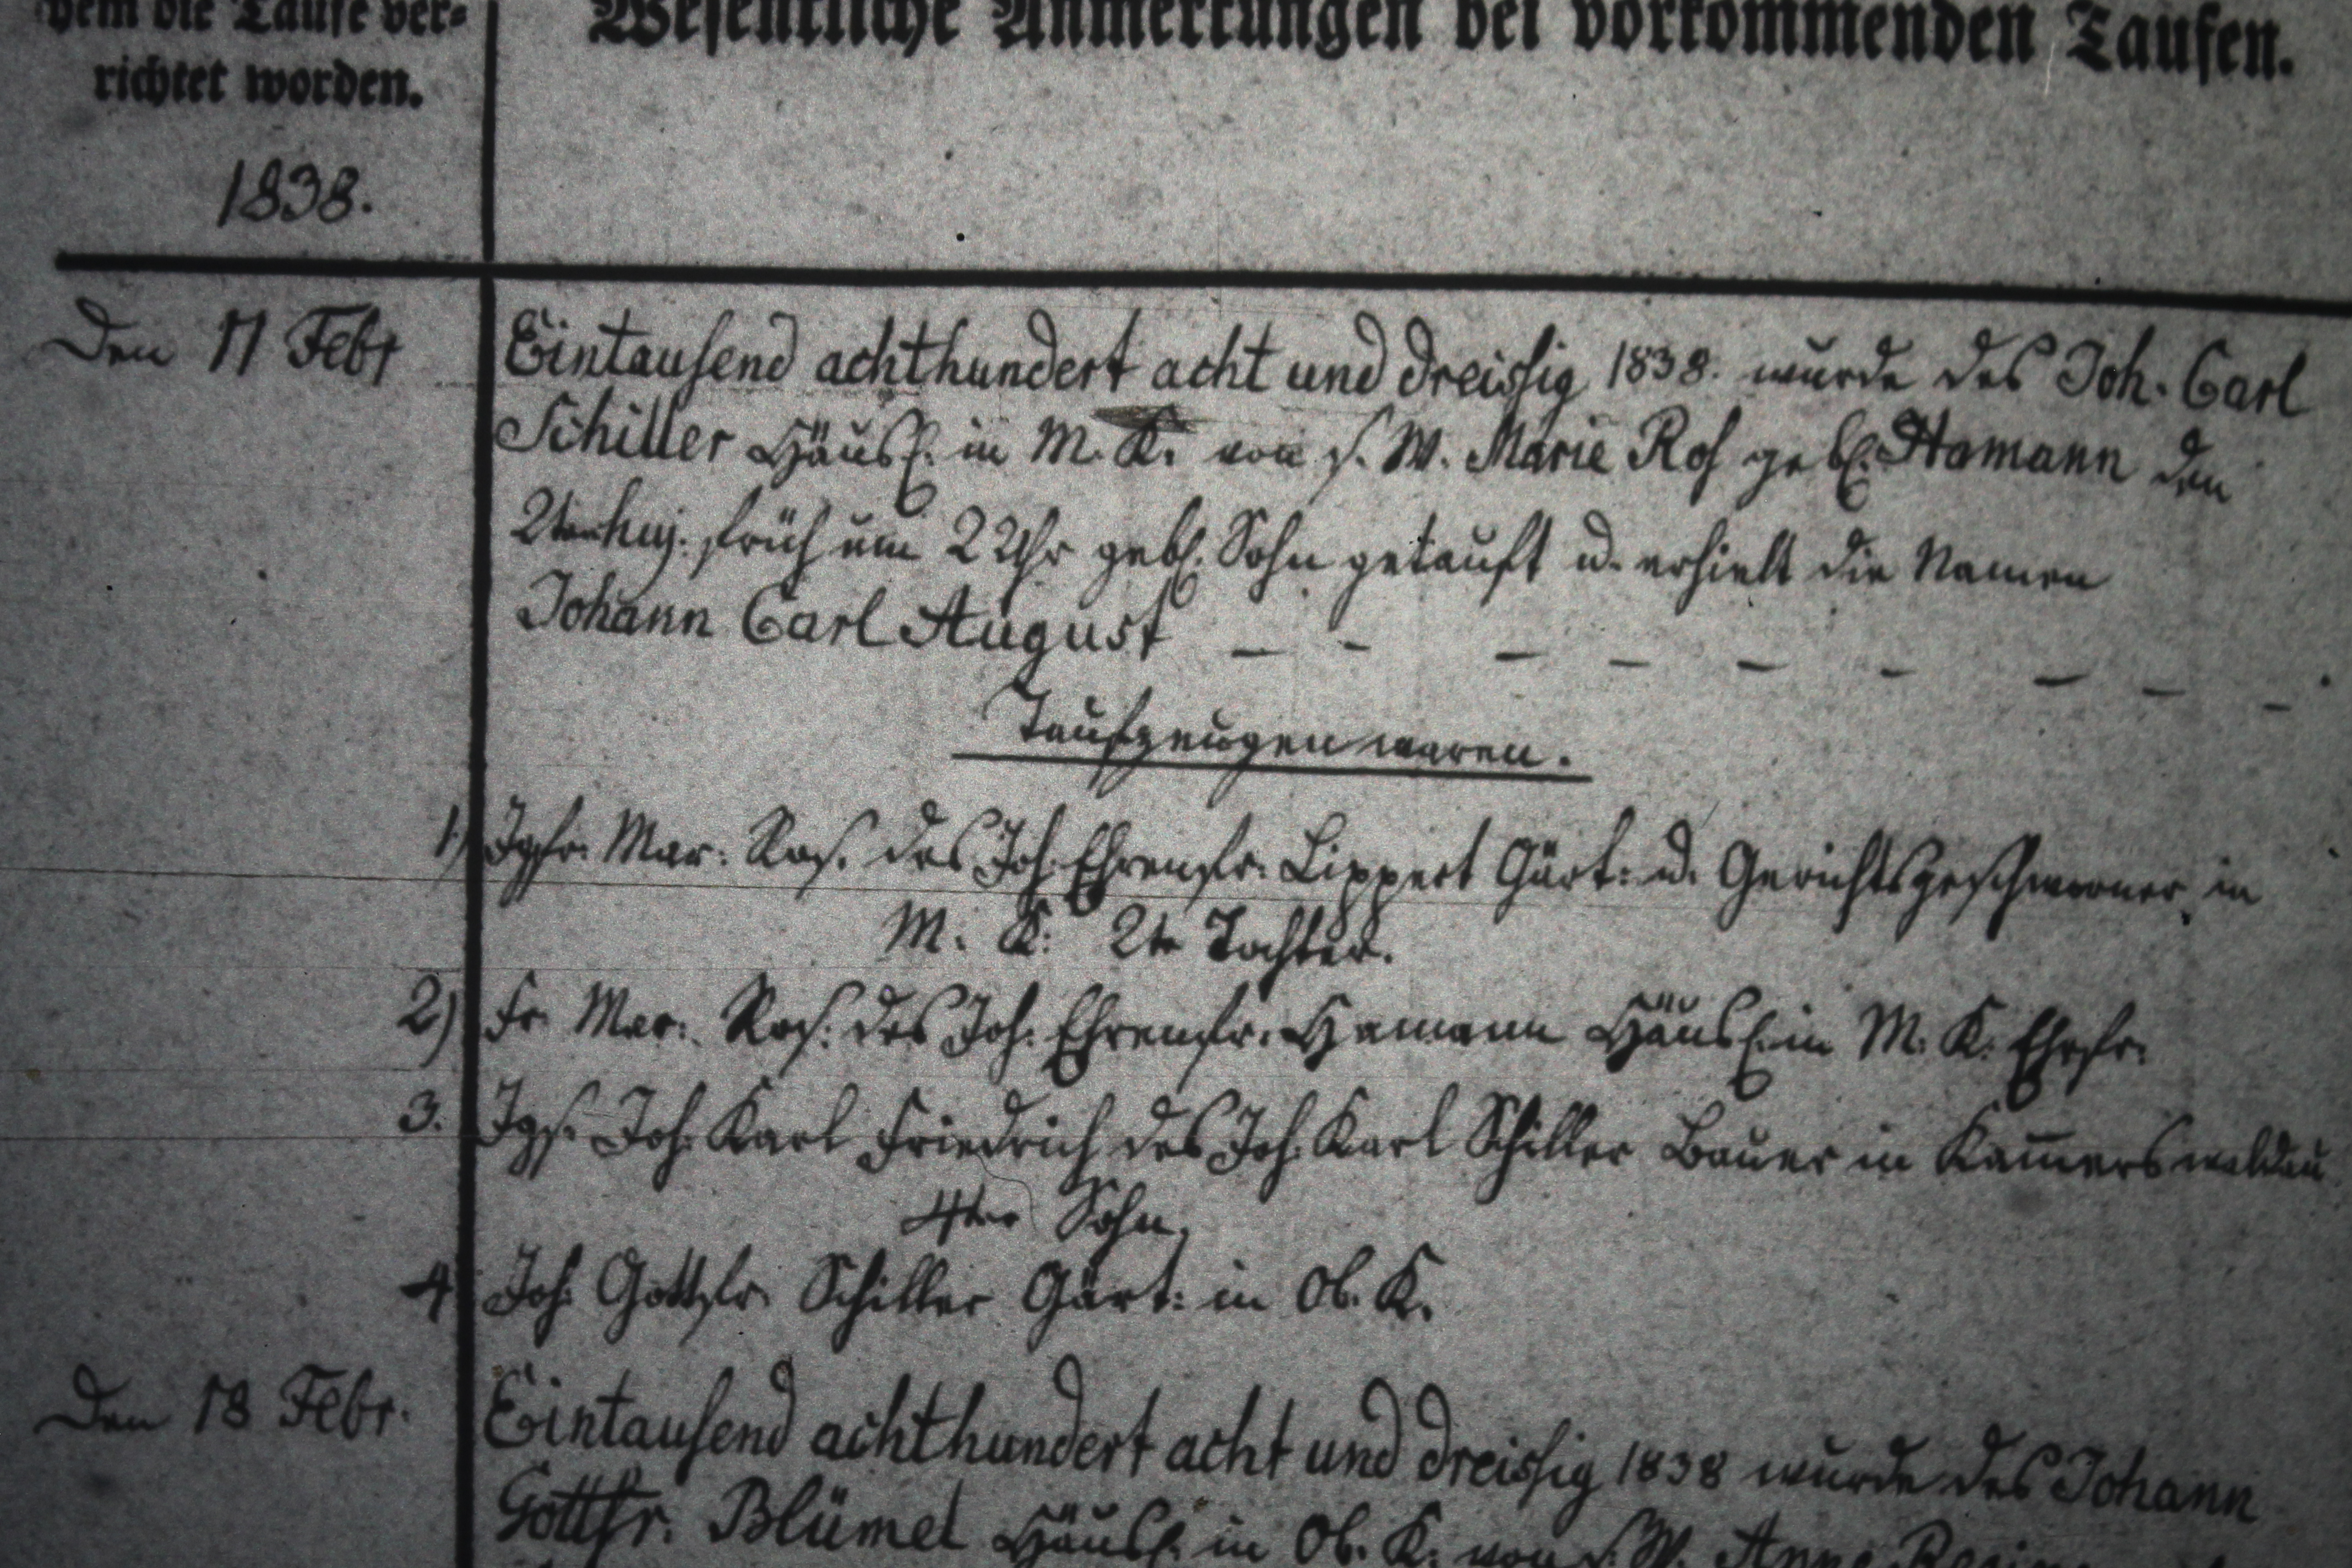 dem die Taufe ver-
richtet worden.
Wesentliche Anmerkungen bei vorkommenden Taufen.
1838.
Den 11 Febr
Eintausend achthundert acht und dreissig 1838. wurde des Joh. Carl
Schiller Häusl. in M. K. von s. W. Marie Ros gebl. Hamann den
2ten huj. früh um 2 Uhr gebl. Sohn getauft u. erhielt die Namen
Johann Carl August – – – – – – – – –
Taufzeugen waren.
1) Jgfr. Mar: Ros. des Joh. Ehrenfr. Lippert Gärt: u. Gerichtsgeschworner in
M. K: 2te Tochter.
2) Fr. Mar: Ros: des Joh: Ehrenfr. Hamann Häusl. in M. K. Ehefr.
3. Jgs. Joh. Karl Friedrich des Joh. Karl Schiller Bauer in Kam̄erswaldau
4ter Sohn,
4 Joh: Gottfr. Schiller Gärt: in Ob. K.
Den 18 Febr.
Eintausend achthundert acht und dreissig 1838 wurde des Johann
Gottfr. Blümel Häusl. in Ob. K. von s. W. Anne